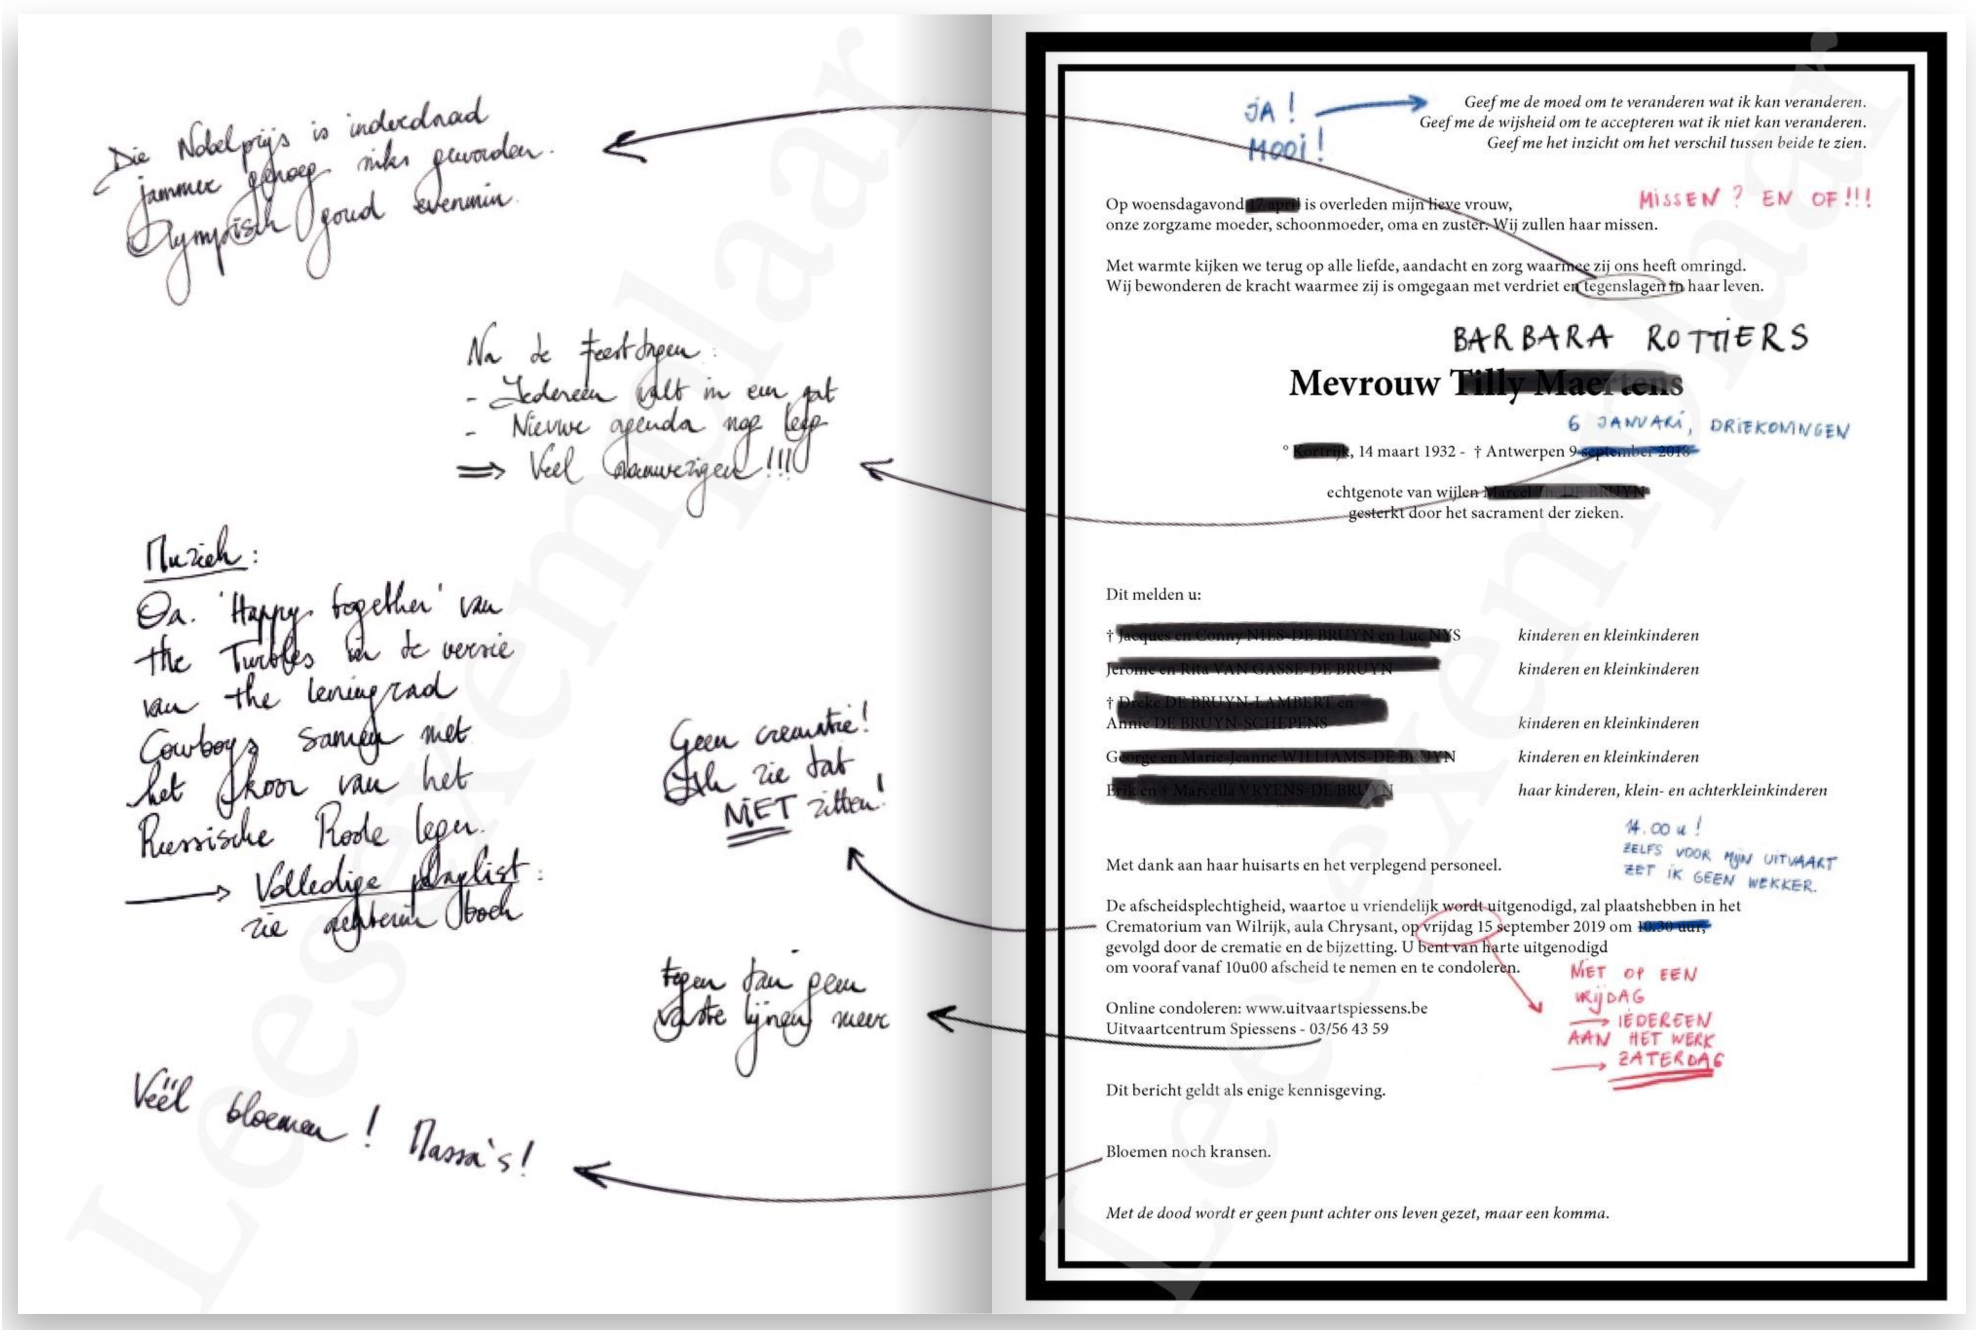 Die Nobelprijs is inderdaad
jammer genoeg niks geworden.
Olympisch goud evenmin.
Na de feestdagen:
- Iedereen valt in een gat
- Nieuwe agenda nog leeg
⇒ Veel aanwezigen!!!
Muziek:
Oa. 'Happy together' van
the Turtles in de versie
van the Leningrad
Cowboys samen met
het koor van het
Russische Rode leger.
→ Volledige playlist:
zie achterin boek
Geen crematie!
Ik zie dat
NIET zitten!
tegen dan geen
vaste lijnen meer
Véél bloemen! Massa's!
JA!
MOOI!
Geef me de moed om te veranderen wat ik kan veranderen.
Geef me de wijsheid om te accepteren wat ik niet kan veranderen.
Geef me het inzicht om het verschil tussen beide te zien.
MISSEN? EN OF!!!
Op woensdagavond 17 april is overleden mijn lieve vrouw,
onze zorgzame moeder, schoonmoeder, oma en zuster. Wij zullen haar missen.
Met warmte kijken we terug op alle liefde, aandacht en zorg waarmee zij ons heeft omringd.
Wij bewonderen de kracht waarmee zij is omgegaan met verdriet en tegenslagen in haar leven.
BARBARA ROTTIERS
Mevrouw Tilly Maertens
6 JANUARI, DRIEKONINGEN
° Kortrijk, 14 maart 1932 - † Antwerpen 9 september 2018
echtgenote van wijlen Marcel DE BRUYN
gesterkt door het sacrament der zieken.
Dit melden u:
† Jacques en Conny NIES-DE BRUYN en Luc NYS kinderen en kleinkinderen
Jerome en Rita VAN GASSE-DE BRUYN kinderen en kleinkinderen
† Dreke DE BRUYN-LAMBERT en
Annie DE BRUYN-SCHEPENS kinderen en kleinkinderen
George en Marie-Jeanne WILLIAMS-DE BRUYN kinderen en kleinkinderen
Erik en † Marcella VRYENS-DE BRUYN haar kinderen, klein- en achterkleinkinderen
14.00 u!
ZELFS VOOR MIJN UITVAART
ZET IK GEEN WEKKER.
Met dank aan haar huisarts en het verplegend personeel.
De afscheidsplechtigheid, waartoe u vriendelijk wordt uitgenodigd, zal plaatshebben in het
Crematorium van Wilrijk, aula Chrysant, op vrijdag 15 september 2019 om 10.30 uur,
gevolgd door de crematie en de bijzetting. U bent van harte uitgenodigd
om vooraf vanaf 10u00 afscheid te nemen en te condoleren.
NIET OP EEN
VRIJDAG
→ IEDEREEN
AAN HET WERK
→ ZATERDAG
Online condoleren: www.uitvaartspiessens.be
Uitvaartcentrum Spiessens - 03/56 43 59
Dit bericht geldt als enige kennisgeving.
Bloemen noch kransen.
Met de dood wordt er geen punt achter ons leven gezet, maar een komma.
Leesexemplaar
Leesexemplaar